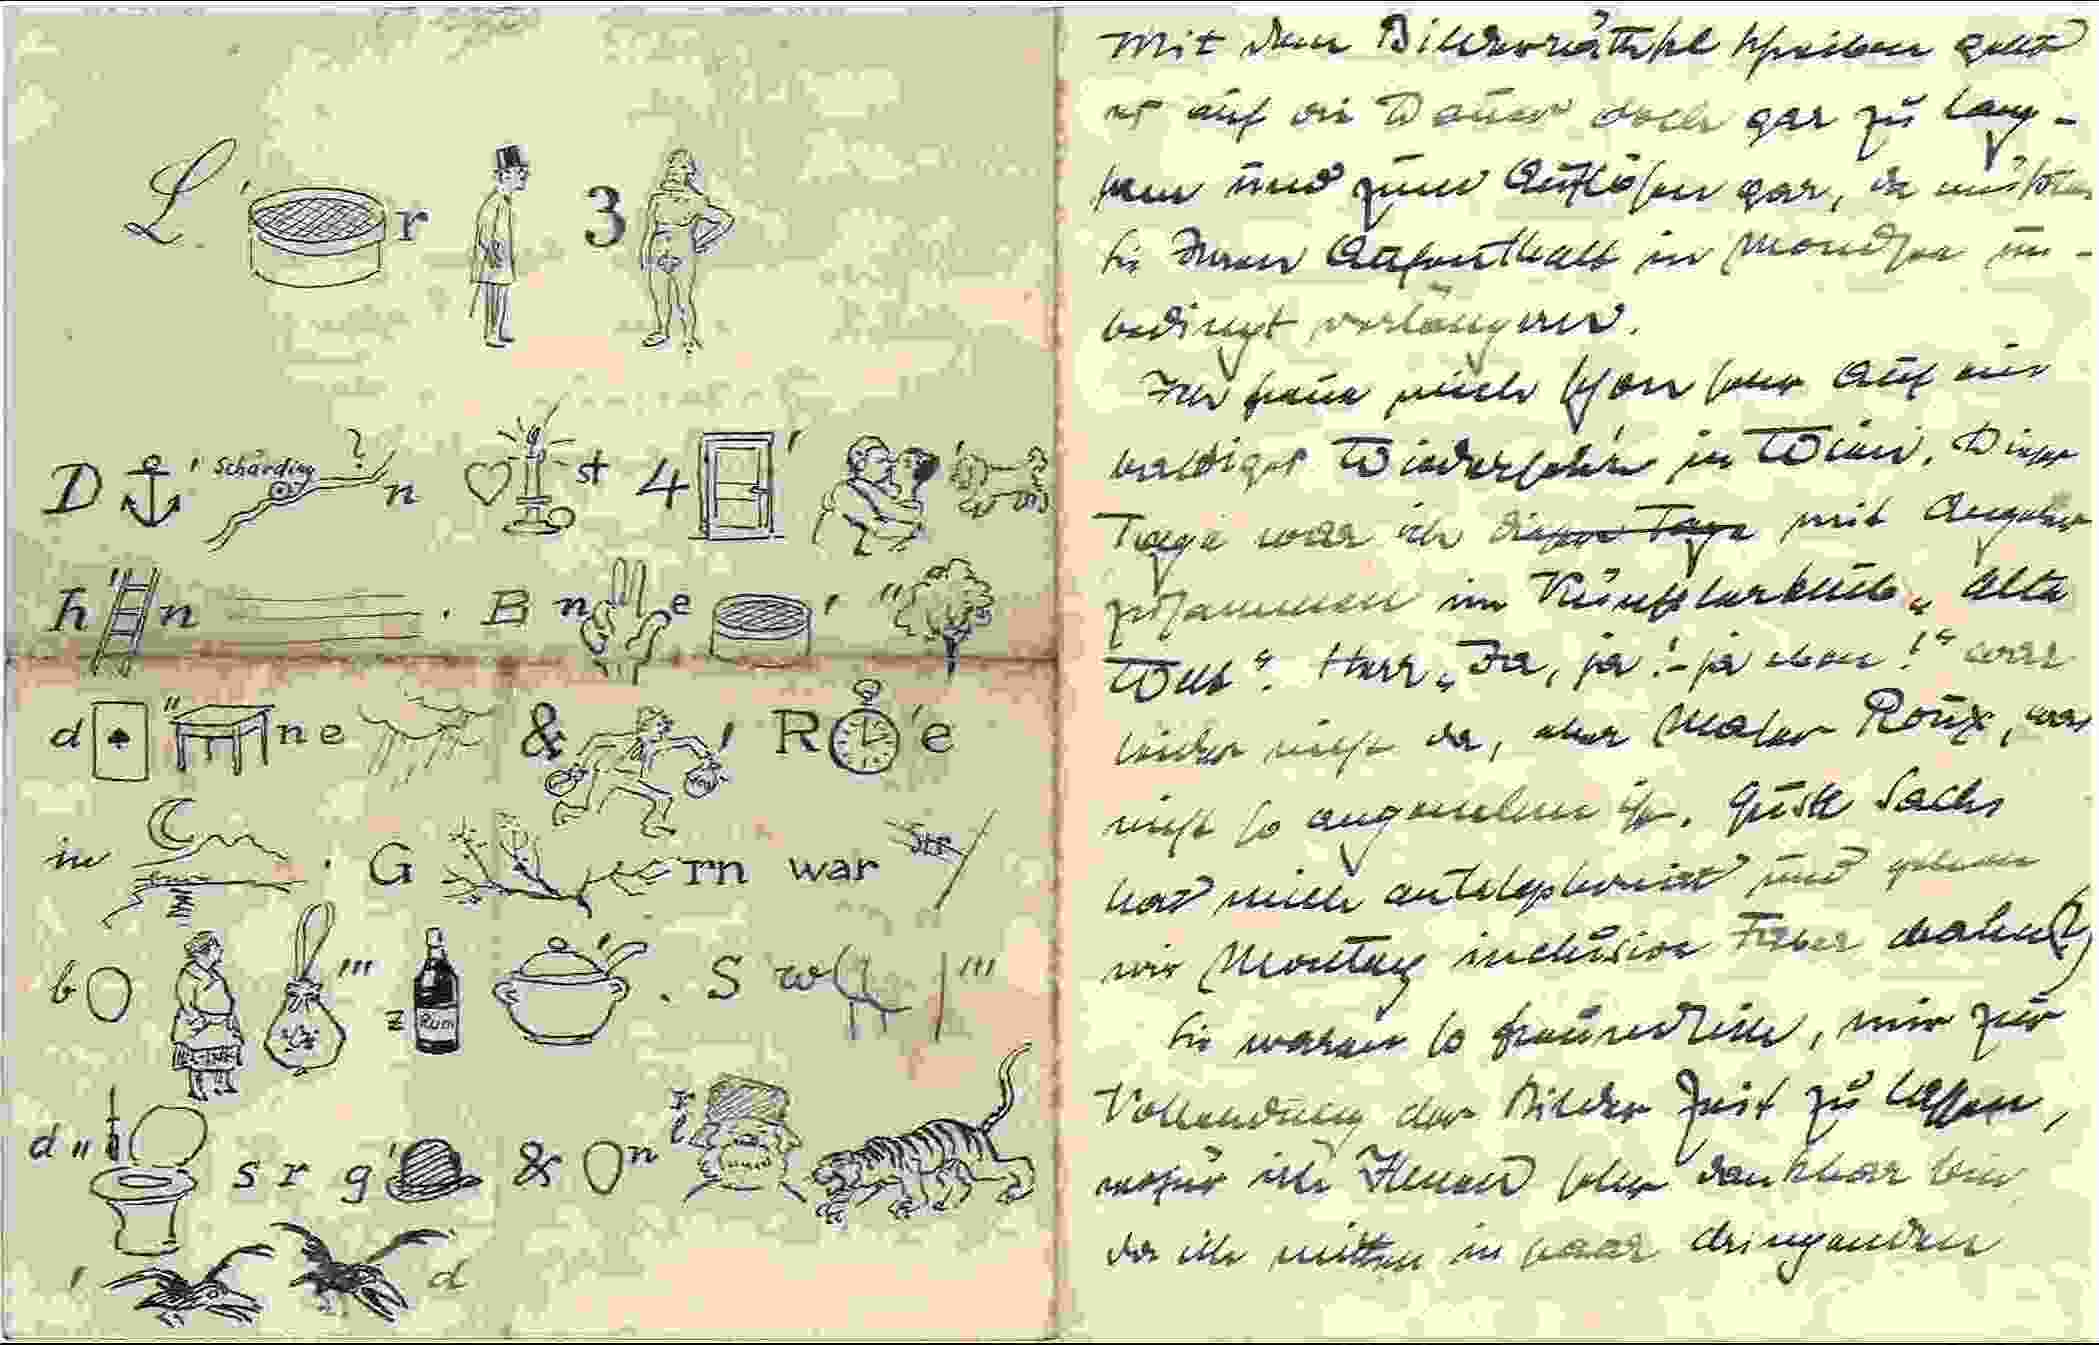 L. ' r 3
D ' Schärding ? n st 4 ' '
h ' n . B n e ' "
d " n e & ' R ' e
in . G rn war Str
b ''' z Rum ' . S w '''
d " s r g ' & n r l
' d
Mit dem Bilderräthsel schreiben geht
es auf die Dauer doch gar zu lang-
sam und zum Auflösen gar, da müßten
Sie Ihren Aufenthalt in Mondsee un-
bedingt verlängern.
Ich freue mich schon sehr auf ein
baldiges Wiedersehn in Wien. Dieser
Tage war ich dieser Tage mit
zusammen im Künstlerklub „Alte
Welt“. Herr „Ja, ja! - ja eben!“ war
leider nicht da, aber Maler Roux, was
nicht so angenehm ist. Sachs
hat mich antelephoniert und gehen
wir Montag inclusive dahin
Sie waren so freundlich, mir zur
Vollendung der Bilder Zeit zu lassen,
wofür ich Ihnen sehr dankbar bin
da ich mitten in paar dringenden